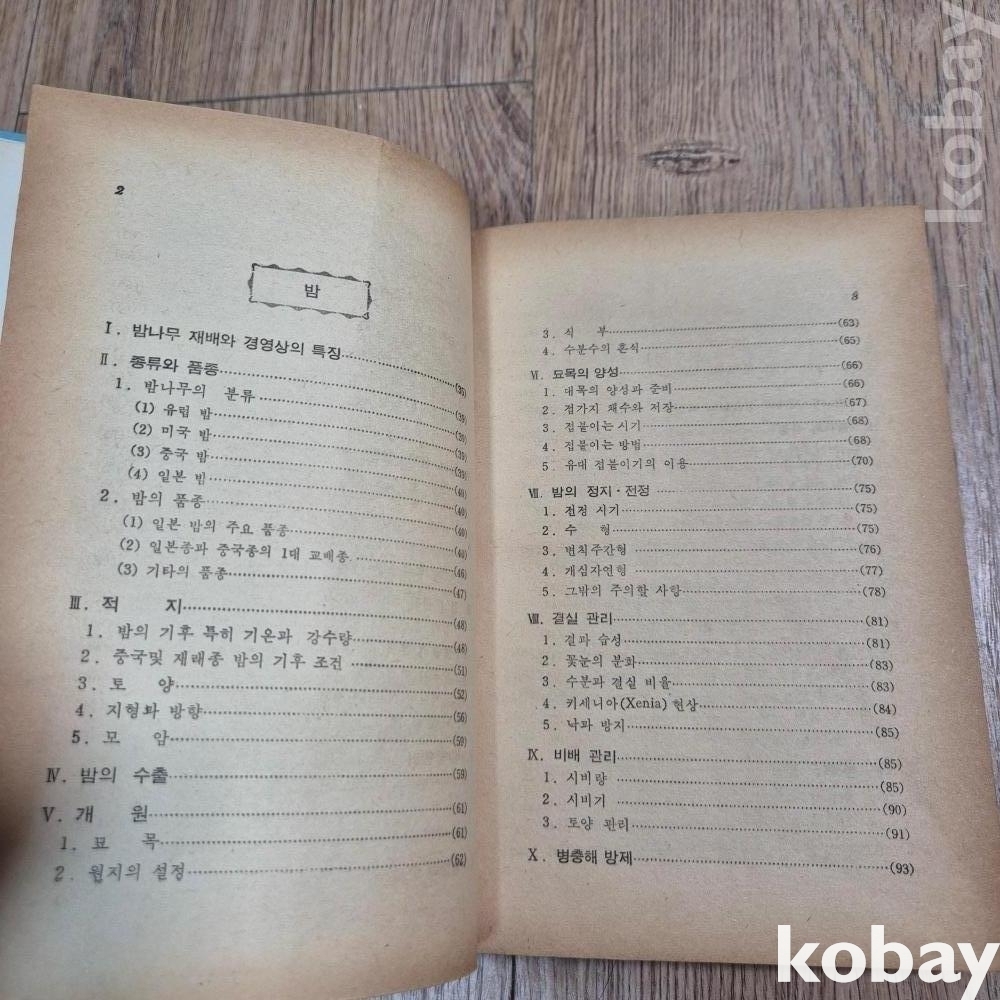 2
밤
Ⅰ. 밤나무 재배와 경영상의 특징 (35)
Ⅱ. 종류와 품종
1. 밤나무의 분류 (39)
(1) 유럽 밤 (39)
(2) 미국 밤 (39)
(3) 중국 밤 (39)
(4) 일본 밤 (40)
2. 밤의 품종 (40)
(1) 일본 밤의 주요 품종 (40)
(2) 일본종과 중국종의 1대 교배종 (46)
(3) 기타의 품종 (47)
Ⅲ. 적 지 (48)
1. 밤의 기후 특히 기온과 강수량 (48)
2. 중국및 재래종 밤의 기후 조건 (51)
3. 토 양 (52)
4. 지형과 방향 (56)
5. 모 암 (59)
Ⅳ. 밤의 수출 (59)
Ⅴ. 개 원 (61)
1. 묘 목 (61)
2. 원지의 설정 (62)
3
3. 식 부 (63)
4. 수분수의 혼식 (65)
Ⅵ. 묘목의 양성 (66)
1. 대목의 양성과 준비 (66)
2. 접가지 채수와 저장 (67)
3. 접붙이는 시기 (68)
4. 접붙이는 방법 (68)
5. 유대 접붙이기의 이용 (70)
Ⅶ. 밤의 정지·전정 (75)
1. 전정 시기 (75)
2. 수 형 (75)
3. 변칙주간형 (76)
4. 개심자연형 (77)
5. 그밖의 주의할 사항 (78)
Ⅷ. 결실 관리 (81)
1. 결과 습성 (81)
2. 꽃눈의 분화 (83)
3. 수분과 결실 비율 (83)
4. 키세니아(Xenia) 현상 (84)
5. 낙과 방지 (85)
Ⅸ. 비배 관리 (85)
1. 시비량 (85)
2. 시비기 (90)
3. 토양 관리 (91)
Ⅹ. 병충해 방제 (93)
kobay
kobay